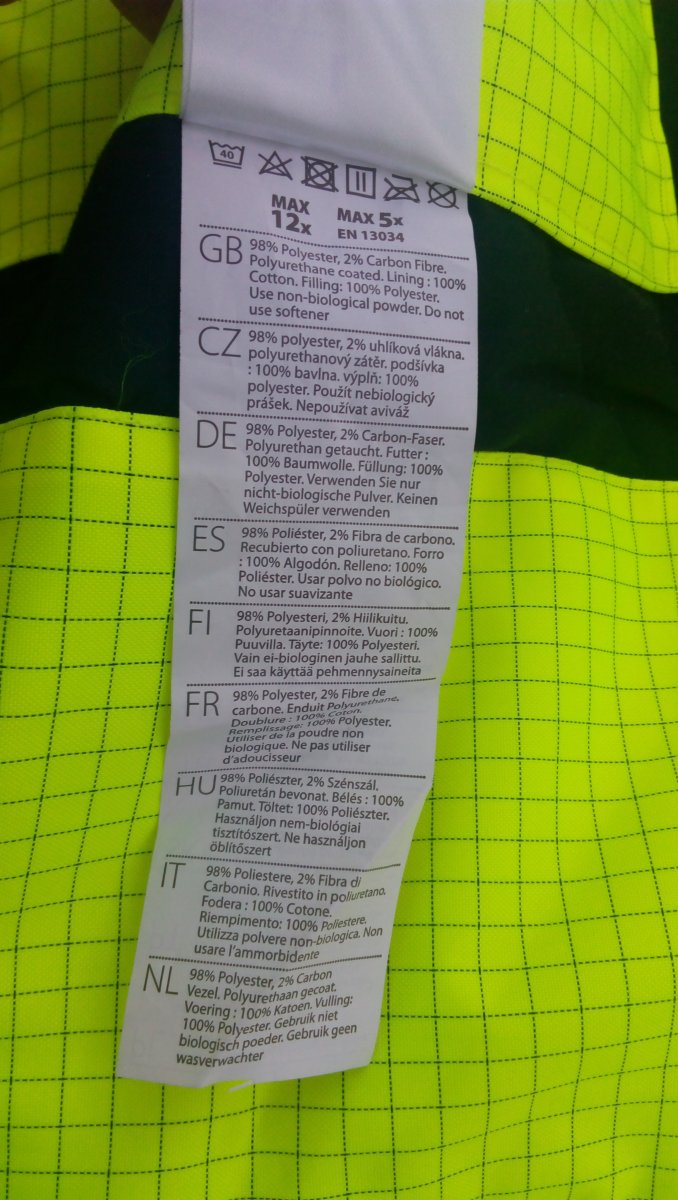 40
MAX
12x
MAX 5x
EN 13034
GB
98% Polyester, 2% Carbon Fibre.
Polyurethane coated. Lining : 100%
Cotton. Filling: 100% Polyester.
Use non-biological powder. Do not
use softener
CZ
98% polyester, 2% uhlíková vlákna.
polyurethanový zátěr. podšívka
: 100% bavlna. výplň: 100%
polyester. Použít nebiologický
prášek. Nepoužívat aviváž
DE
98% Polyester, 2% Carbon-Faser.
Polyurethan getaucht. Futter :
100% Baumwolle. Füllung: 100%
Polyester. Verwenden Sie nur
nicht-biologische Pulver. Keinen
Weichspüler verwenden
ES
98% Poliéster, 2% Fibra de carbono.
Recubierto con poliuretano. Forro
: 100% Algodón. Relleno: 100%
Poliéster. Usar polvo no biológico.
No usar suavizante
FI
98% Polyesteri, 2% Hiilikuitu.
Polyuretaanipinnoite. Vuori : 100%
Puuvilla. Täyte: 100% Polyesteri.
Vain ei-biologinen jauhe sallittu.
Ei saa käyttää pehmennysaineita
FR
98% Polyester, 2% Fibre de
carbone. Enduit Polyurethane.
Doublure : 100% Coton.
Remplissage: 100% Polyester.
Utiliser de la poudre non
biologique. Ne pas utiliser
d'adoucisseur
HU
98% Poliészter, 2% Szénszál.
Poliuretán bevonat. Bélés : 100%
Pamut. Töltet: 100% Poliészter.
Használjon nem-biológiai
tisztítószert. Ne használjon
öblítőszert
IT
98% Poliestere, 2% Fibra di
Carbonio. Rivestito in poliuretano.
Fodera : 100% Cotone.
Riempimento: 100% Poliestere.
Utilizza polvere non-biologica. Non
usare l'ammorbidente
NL
98% Polyester, 2% Carbon
Vezel. Polyurethaan gecoat.
Voering : 100% Katoen. Vulling:
100% Polyester. Gebruik niet
biologisch poeder. Gebruik geen
wasverwachter